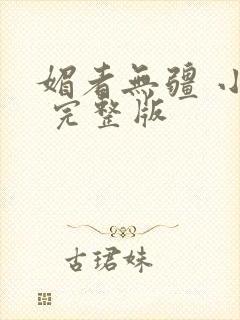 媚者無疆 小
完整版
古珺妹